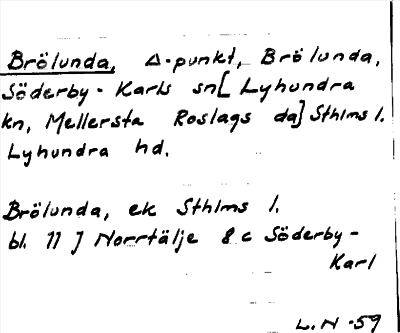 Brölunda, Δ-punkt, Brölunda,
Söderby-Karls sn[Lyhundra
kn, Mellersta Roslags da] Sthlms l.
Lyhundra hd.
Brölunda, ek Sthlms l.
bl. 11 J Norrtälje 8 c Söderby-
Karl
L.N -59